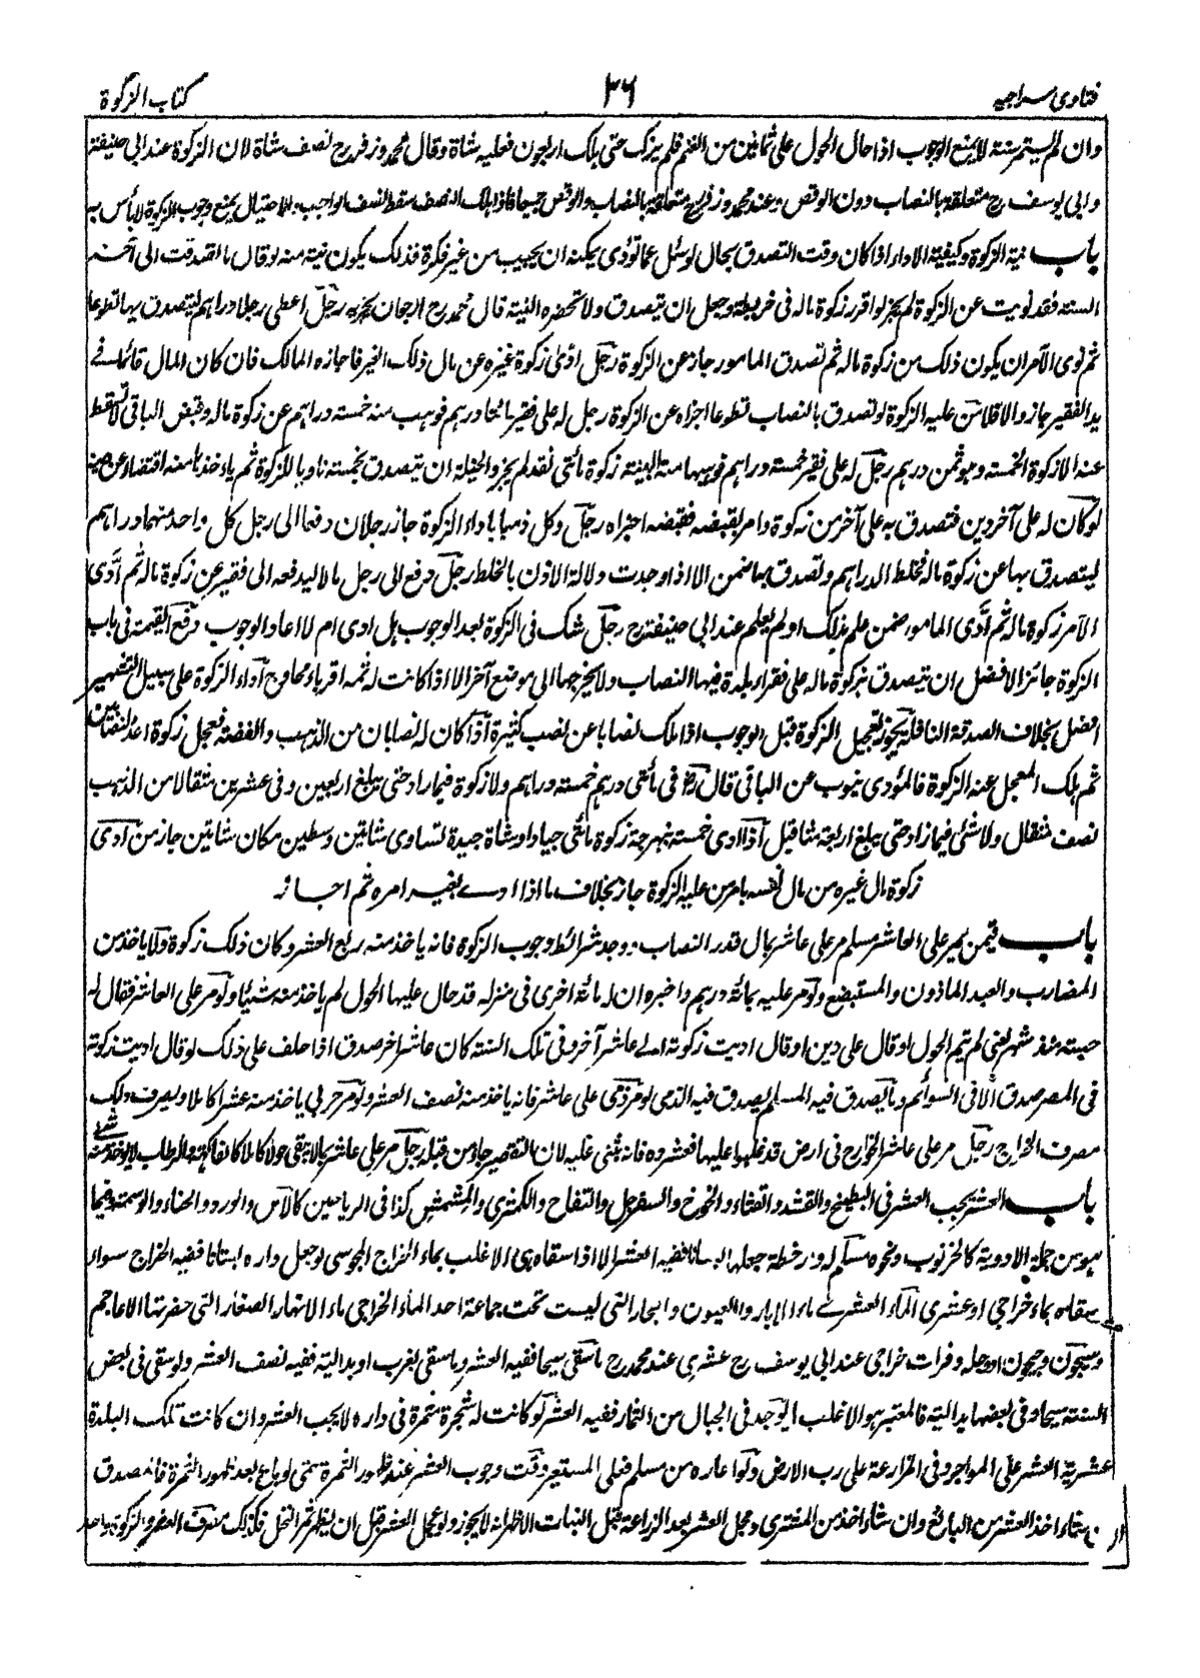 فتاوى سراجيه ٢٦ كتاب الزكوة
وان لم يستتم سنته لا يمنع الوجوب اذا حال الحول على ثمانين من الغنم فلم يزك حتى هلك اربعون فعليه شاة وقال محمد وزفر رح نصف شاة لان الزكوة عند ابى حنيفة
وابى يوسف رح متعلقة بالنصاب دون الوقص وعند محمد وزفر رح متعلقة بالنصاب والوقص جميعا فاذا هلك النصف سقط النصف الواجب الاحتيال يمنع وجوب الزكوة لا بأس به
باب نية الزكوة وكيفية الاداء اذا كان وقت التصدق بحال لو سئل عما تؤدى يمكنه ان يجيب من غير فكرة فذلك يكون نية منه لو قال ما تصدقت الى آخر
السنة فقد نويت عن الزكوة لم يجز لو اقرر زكوة ماله فى خريطة وجعل ان يتصدق ولا تحضره النية قال محمد رح ارجو ان يجزيه رجل اعطى رجلا دراهم ليتصدق بها تطوعا
ثم نوى الآمر ان يكون ذلك من زكوة ماله ثم تصدق المامور جاز عن الزكوة رجل ادى زكوة غيره عن مال ذلك الغير فاجازه المالك فان كان المال قائما فى
يد الفقير جاز والا فلا من عليه الزكوة لو تصدق بالنصاب تطوعا اجزاه عن الزكوة رجل له على فقير مائتا درهم فوهب منه خمسة دراهم عن زكوة ماله وقبض الباقى لا تسقط
عنه الا زكوة الخمسة وهو ثمن درهم رجل له على فقير خمسة دراهم فوهبها منه البينة زكوة مائتى نقد لم يجز والحيلة ان يتصدق بخمسة ناويا للزكوة ثم ياخذها منه اقتضاء عن دينه
لو كان له على آخر دين فتصدق به على آخر من زكوة وامر بقبضه فقبضه اجزاه رجل وكل ذميا باداء الزكوة جاز رجلان دفعا الى رجل كل واحد منهما دراهم
ليتصدق بها عن زكوة ماله فخلط الدراهم وتصدق بها ضمن الا اذا وجدت دلالة الاذن بالخلط رجل دفع الى رجل مالا ليدفعه الى فقير عن زكوة ماله ثم ادى
الآمر زكوة ماله ثم ادى المامور ضمن علم بذلك او لم يعلم عند ابى حنيفة رح رجل شك فى الزكوة بعد الوجوب هل ادى ام لا اعاد الوجوب دفع القيمة فى باب
الزكوة جائز الافضل ان يتصدق بزكوة ماله على فقراء بلدة فيها النصاب ولا يخرجها الى موضع آخر الا اذا كانت له ثمه اقرباء محاويج آداء الزكوة على سبيل التشهير
افضل بخلاف الصدقة النافلة يجوز تعجيل الزكوة قبل الوجوب اذا ملك نصابا عن نصب كثيرة اذا كان له نصابان من الذهب والفضة فعجل زكوة احد النصابين
ثم هلك المعجل عنه الزكوة فالمؤدى ينوب عن الباقى قال رح فى مأتى درهم خمسة دراهم ولا زكوة فيما زاد حتى يبلغ اربعين وفى عشرين مثقالا من الذهب
نصف مثقال ولا شئ فيما زاد حتى يبلغ اربعة مثاقيل اذا ادى خمسة نبهرجة زكوة مأتى جياد او شاة جيدة تساوى شاتين وسطين مكان شاتين جاز من ادى
زكوة مال غيره من مال نفسه بامر من عليه الزكوة جاز بخلاف ما اذا ادى بغير امره ثم اجاز
باب فيمن يمر على العاشر مسلم مر على عاشر بمال قدر النصاب ووجد شرائط وجوب الزكوة فانه ياخذ منه ربع العشر وكان ذلك زكوة ولا ياخذ من
المضارب والعبد الماذون والمستبضع ولو مر عليه بمائة درهم واخبره ان له مائة اخرى فى منزله قد حال عليها الحول لم ياخذ منه شيئا ولو مر على العاشر فقال له
حبسته منذ شهر يعنى لم يتم الحول او قال على دين او قال اديت زكوته الى عاشر آخر وفى تلك السنة كان عاشر اخر صدق اذا حلف على ذلك لو قال اديت زكوته
فى المصر صدق الا فى السوائم وما يصدق فيه المسلم يصدق فيه الذمى لو مر ذمى على عاشر فانه ياخذ منه نصف العشر ولو مر حربى ياخذ منه عشرا كاملا ويصرف ذلك
مصرف الخراج رجل مر على عاشر الخوارج فى ارض قد غلبوا عليها فعشروه فانه يثنى عليه لان التقصير جاء من قبله رجل مر على عاشر بما لا يبقى حولا كاملا كالفاكهة والرطاب لا يوخذ منه شئ
باب العشر يجب العشر فى البطيخ والقثد والقثاء والخوخ والسفرجل والتفاح والكمثرى والمشمش كذا فى الرياحين كالآس والورد والحناء والوسمة وفيما
هو من جملة الادوية كالخرنوب ونحوه مسلم له دار خطة جعلها بستانا ففيه العشر الا اذا سقاه بماء الخراج المجوسى لو جعل داره بستانا ففيه الخراج سواء
سقاه بماء خراجى او عشرى الماء العشرى ماء الابار والعيون والبحار التى ليست تحت جماعة احد الماء الخراجى ماء الانهار الصغار التى حفرتها الاعاجم
وسيحون وجيحون ودجلة وفرات خراجى عند ابى يوسف رح عشرى عند محمد رح ما سقى سيحا ففيه العشر وما سقى بغرب او بدالية ففيه نصف العشر ولو سقى فى بعض
السنة سيحا وفى بعضها بدالية فالمعتبر هو الاغلب ما يوجد فى الجبال من الثمار ففيه العشر لو كانت له شجرة مثمرة فى داره لا يجب العشر وان كانت تلك البلدة
عشرية العشر على المواجر وفى المزارعة على رب الارض ولو اعاره من مسلم فعلى المستعير وقت وجوب العشر عند ظهور الثمرة حتى لو باع بعد ظهور الثمرة فالمصدق
ان شاء اخذ العشر من البائع وان شاء اخذ من المشترى وعجل العشر بعد الزراعة قبل النبات الاظهر انه لا يجوز ولو عجل العشر قبل ان يظهر ثمر النخل فكذلك مصرف العشر والزكوة واحد